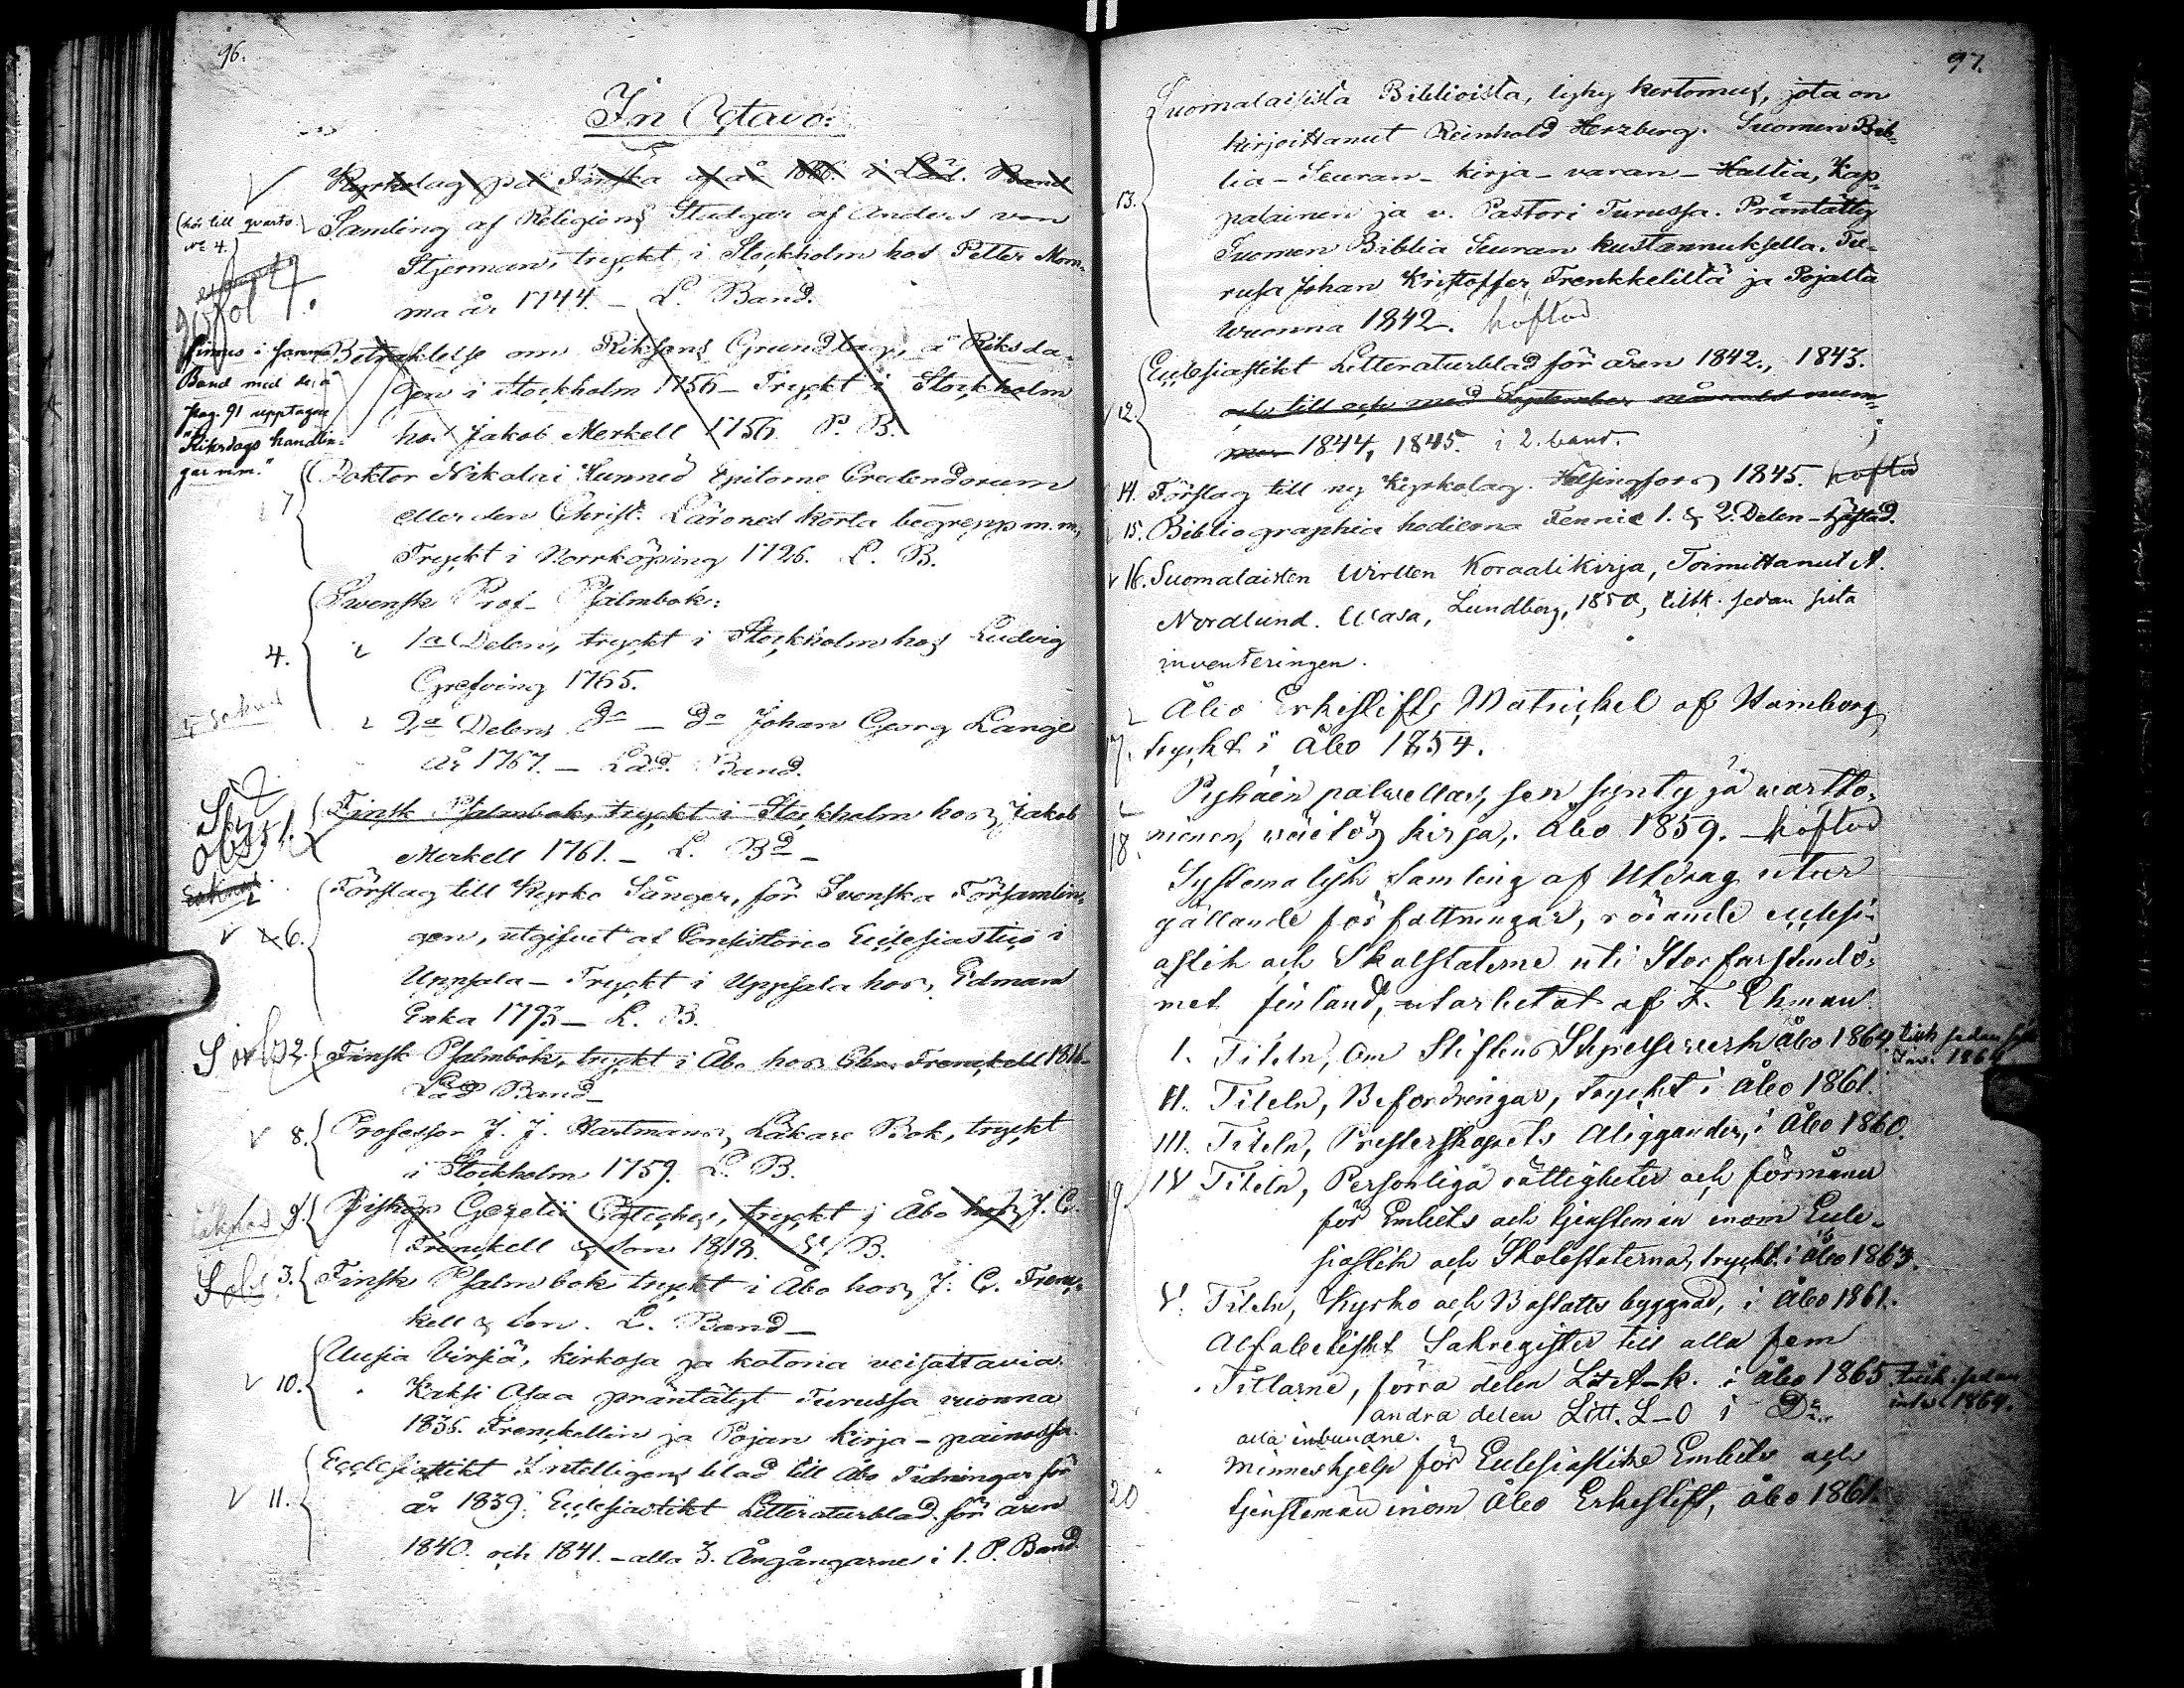 96.
In Octavo:
Kyrkolag på Finska af år 1686. i Läd. Band
(hör till qvarto
№ 4.)
Samling af Religions Stadgar af Anders von
Stjerman, tryckt i Stockholm hos Petter Mom-
ma år 1744. — L. Band.
finnes i samma
Band med de å
pag. 91 upptagne
"Riksdags handlin-
gar m.m."
Betraktelse om Riksens Grundlag, å Riksda-
gen i Stockholm 1756 — Tryckt i Stockholm
hos Jakob Merkell 1756. P. B.
7. Doktor Nikolai Hunnii Epitome Credendorum
eller den Christ. Lärones korta begrepp m.m,
Tryckt i Norrköping 1726. L. B.
4. Swensk Prof- Psalmbok:
1a Delen, tryckt i Stockholm hos Ludvig
Grefving 1765.
2a Delen do — do Johan Georg Lange
År 1767. — Läd. Band.
1. Finsk Psalmbok, tryckt i Stockholm hos Jakob
Merkell 1761. — L. Bd —
6. Förslag till Kyrko Sånger, för Svenska Församlin-
gen, utgifvet af Consistorio Ecclesiastico i
Uppsala — Tryckt i Uppsala hos Edmans
Enka 1793 — L. B.
2. Finsk Psalmbok, tryckt i Åbo hos Chr. Frenckell 1816
Läd Band —
8. Professor J. J. Hartmans Läkare Bok, tryckt
i Stockholm 1759. L. B.
9. Biskop Gezelii Cateches, tryckt i Åbo hos J. C.
Frenckell & Son 1818. L. B.
3. Finsk Psalmbok tryckt i Åbo hos J. C. Frenc-
kell & Son. L. Band —
10. Uusia Virsiä, kirkosa ja kotona veisattavia.
Kaksi Osaa präntätyt Turussa vuonna
1836. Frenckellin ja Pojan Kirja-painossa.
11. Ecclesiastikt Intelligens blad till Åbo Tidningar för
år 1839. Ecclesiastikt Litteraturblad för åren
1840. och 1841. — alla 3. Årgångarne i 1. P. Band
97.
Suomalaisista Biblioista, lyhy kertomus, jota on
kirjoittanut Reinhold Herzberg. Suomen Bib-
lia-Seuran-kirja-varan-Haltia, Kap-
13. palainen ja v. Pastori Turussa. Präntätty
Suomen Biblia Seuran kustannuksella. Tu-
rusa Johan Kristoffer Frenkkeliltä ja Pojalta
wuonna 1842. häftad
Ecclesiastikt Litteraturblad för åren 1842., 1843.
12. och till och med September månads num-
mer 1844, 1845. i 2. band.
14. Förslag till ny Kyrkolag. Helsingfors 1845. häftad
15. Bibliographia hodierna Fenniæ 1. & 2. Delen — häftad.
16. Suomalaisten Wirtten Koraalikirja, Toimittanut A.
Nordlund. Wasa, Lundberg, 1850, tillk. sedan sista
inventeringen.
Åbo Erkestifts Matrickel af Wamberg,
17. tryckt i Åbo 1854.
18. nimen, wäitös kirja, Åbo 1859. — häftad
Systematisk Samling af Utdrag utur
gällande författningar, rörande ecclesi-
astik och Skolstaterne uti Storfurstendö-
met Finland, utarbetat af F. Ehman
I. Titeln, Om Stiftens Styrelseverk Åbo 1864
II. Titeln, Befordringar, tryckt i Åbo 1861.
III. Titeln, Presterskapets Åligganden, i Åbo 1860.
19. IV Titeln, Personliga rättigheter och förmåner
för Embets och tjensteman inom Eccle-
siastik och Skolestaterna, tryckt i Åbo 1863.
V. Titeln, Kyrko och Boställs byggnad, i Åbo 1861.
Alfabetiskt Sakregister till alla fem
Titlarne, förra delen Litt A-K. i Åbo 1865 tillk. sedan
invt 1869.
andra delen Litt. L-Ö i Do
alla inbundne.
Minneshjelp för Ecclesiastike Embets och
20 tjensteman inom Åbo Erkestift, Åbo 1861.